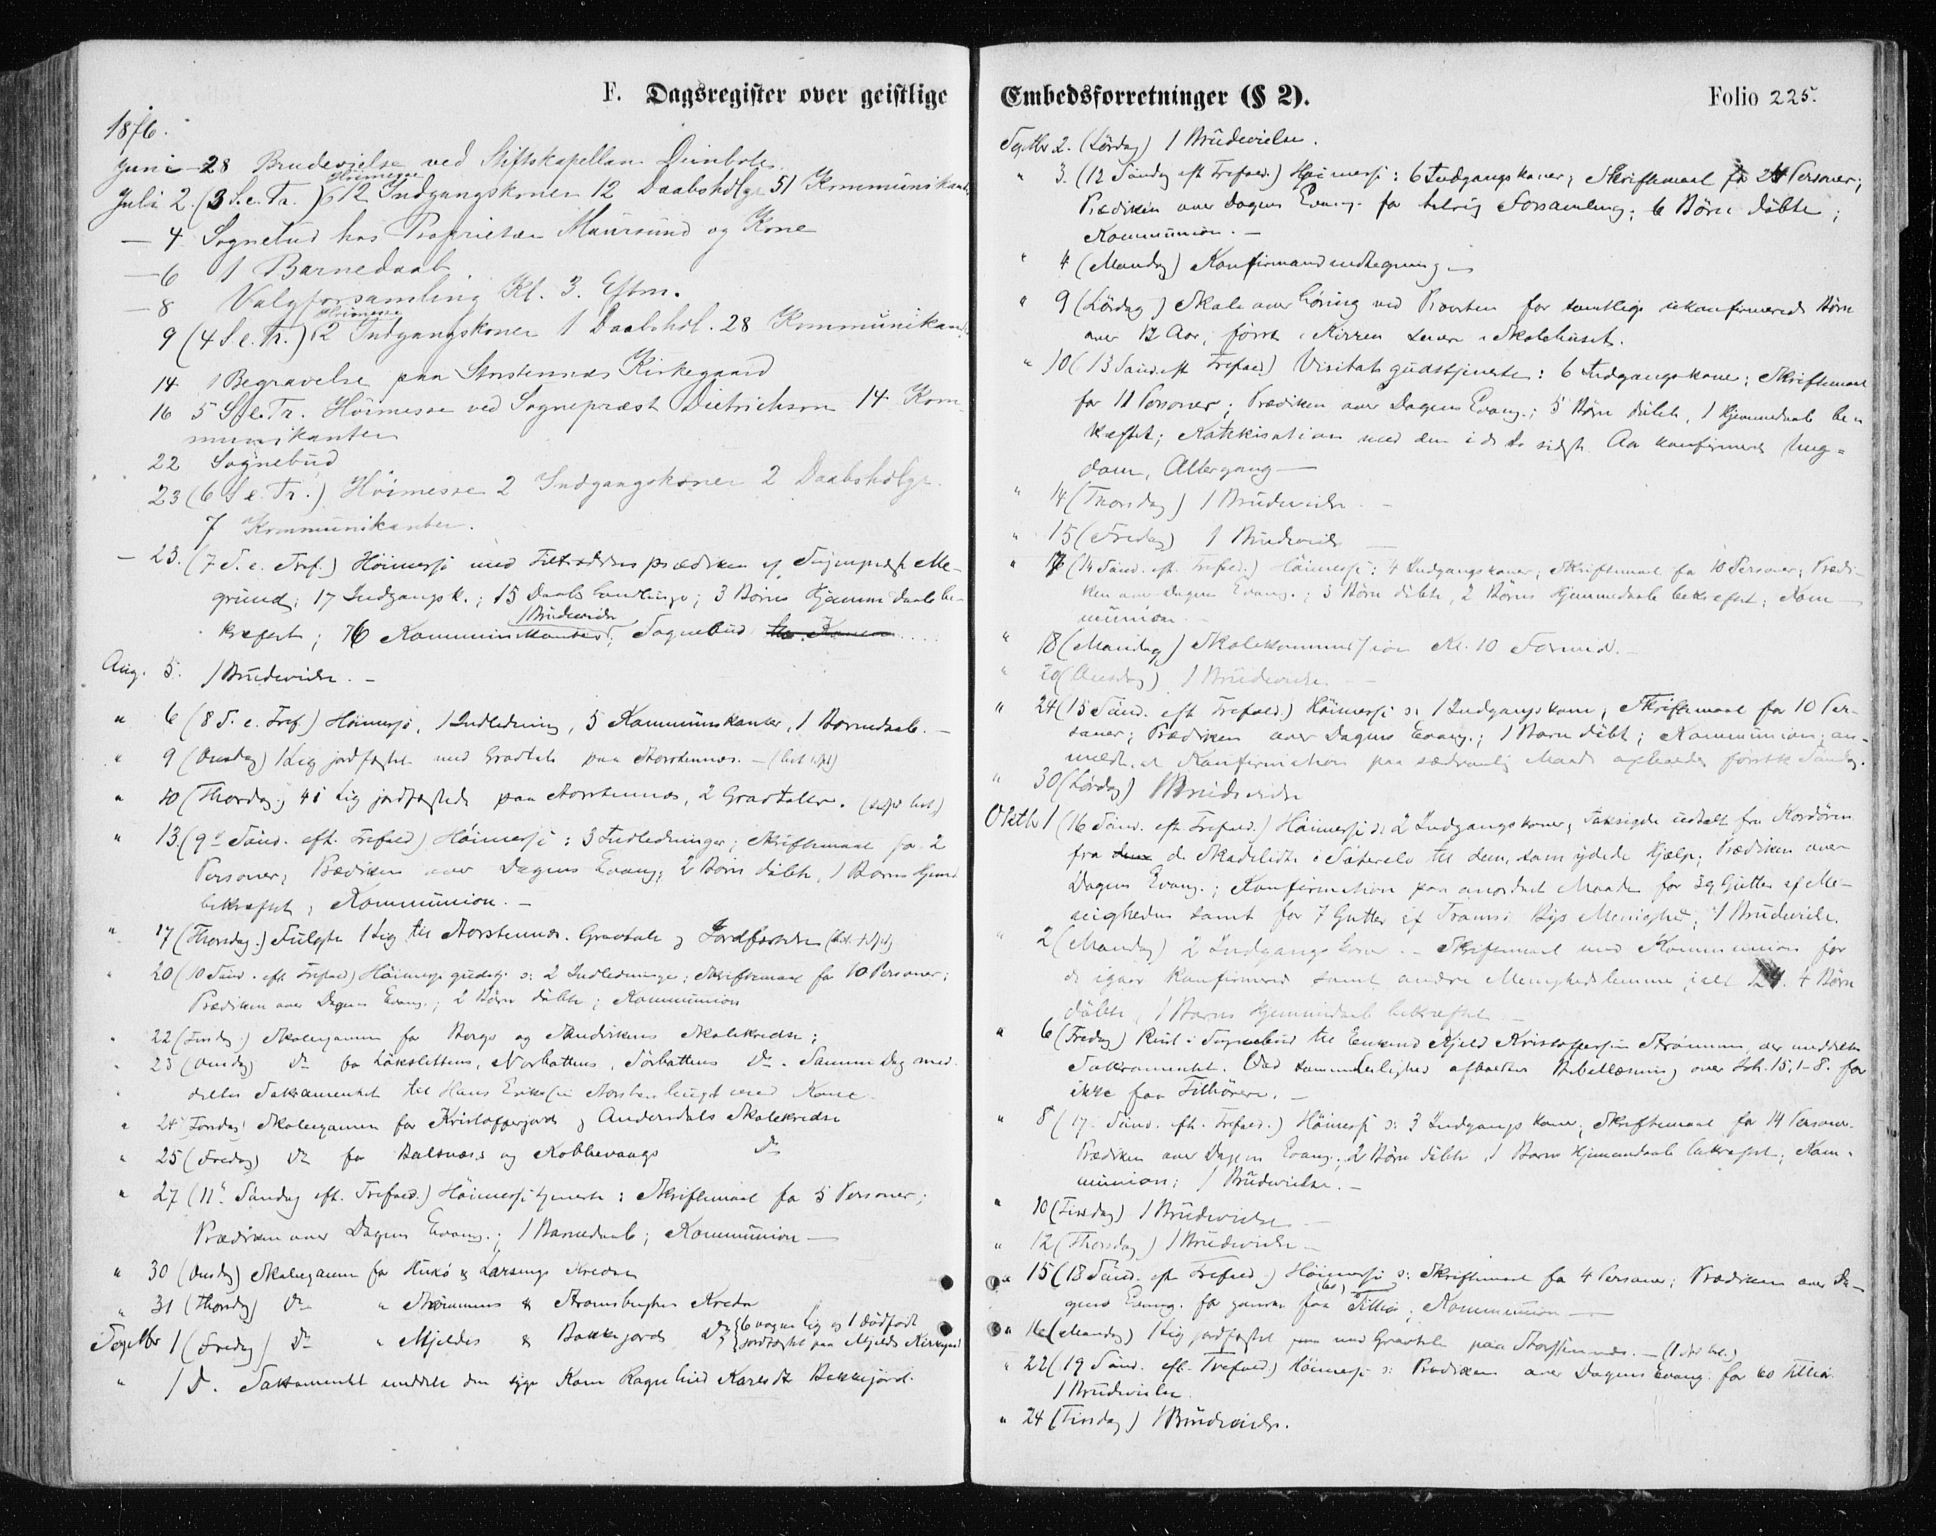 F. Dagsregister over geistlige
1876.
Juni 28 Brudevielse ved Stiftskapellan Deinboll
Høimesse
Juli 2. (3 S. e. Tr.) 12 Indgangskoner 12 Daabshdlgr 51 Kommunikant.
— 4 Sognebud hos Proprietær Maursund og Kone
— 6 1 Barnedaab.
— 8 Valgforsamling Kl. 3. Eftm.
Høimesse
9 (4 S. e. Tr.) 2 Indgangskoner 1 Daabshdl. 28 Kommunikan.
14 1 Begravelse paa Storstennæs Kirkegaard
16 5 S. e. Tr. Høimesse ved Sognepræst Dietrichson 14 Kom-
munikanter
22 Sognebud
23 (6 S. e. Tr.) Høimesse 2 Indgangskoner 2 Daabshdlgr.
7 Kommunikanter.
— 23. (7 S. e. Tref.) Høimesse med Tiltrædelsesprædiken af Sognepræst Me-
grund; 17 Indgangsk.; 15 Daabshandlinger; 3 Børns Hjemmedaab be-
1 Brudevielse
kræftet; 76 Kommunikanter; Sognebud
Aug. 5. 1 Brudevielse. —
" 6 (8 S. e. Tref.) Høimesse, 1 Indledning, 5 Kommunikanter, 1 Barnedaab. —
" 9 (Onsdag) 1 Lig jordfæstet med Gravtale paa Storstennæs. —
" 10 (Thorsdag) Lig jordfæstede paa Storstennæs, 2 Gravtaler.
" 13. (9de Sønd. eft. Trefold.) Høimesse: 3 Indledninger; Skriftemaal for 2
Personer; Prædiken over Dagens Evang; 2 Børn døbte, 1 Barns Hjemd.
bekræftet; Kommunion. —
" 17 (Thorsdag.) Fulgte 1 Lig til Storstennæs. Gravtale og Jordfæstelse
" 20 (10 Sønd. eft. Trefold.) Høimesse gudstj. : 2 Indledninger; Skriftemaal for 10 Personer;
Prædiken over Dagens Evang.; 2 Børn døbte; Kommunion
" 22 (Tirsdag) Skoleexamen for Bergs og Sandvikens Skolekredse;
" 23 (Onsdag) Do for Løkslettens, Norbottens, Sørbottens Do. Samme Dag med-
deeltes Sakramentet til Hans Eriksen med Kone
" 24 (Torsdag) Skoleexamen for Kristofferjords og Andersdals Skolekredse
" 25 (Fredag) Do for Balsnæs og Kobbevaags Do
" 27 (11te Søndag eft. Trefold.) Høimessetjeneste: Skriftemaal for 5 Personer;
Prædiken over Dagens Evang.; 1 Barnedaab; Kommunion —
" 30 (Onsdag) Skoleexamen for og Larsengs Kredse
" 31 (Thorsdag) Do " Strømmens & Kredse
Septbr 1 (Fredag) Do " Mjeldes & Bakkejords Do 6 voxne Lig og 1 dødfødt
jordfæstet paa Mjelde Kirkegaard
" 1 D. Sakramentet meddelt den syge Kone Ragnhild Karlsdtr Bakkejord.
Embedsforretninger (§ 2).
Folio 225.
Septbr 2. (Lørdag) 1 Brudevielse.
" 3. (12 Søndag eft Trefold.) Høimesse: 6 Indgangskoner; Skriftemaal for 24 Personer;
Prædiken over Dagens Evang. for talrig Forsamling; 6 Børn døbte;
Kommunion. —
" 4 (Mandag) Konfirmandindtegning —
" 9 (Lørdag) Skoleoverhøring ved Provsten for samtlige ukonfirmerede Børn
over 12 Aar, først i Kirken senere i Skolehuset.
" 10 (13 Sønd. eft Trefold.) Visitatsgudstjeneste: 6 Indgangskoner; Skriftemaal
for 11 Personer; Prædiken over Dagens Evang.; 5 Børn døbte, 1 Hjemmedaab be-
kræftet; Katekisation med den i de to sidste Aar konfirmerede Ung-
dom, Altergang —
" 14 (Thorsdag) 1 Brudevielse. —
" 15 (Fredag) 1 Brudevielse —
" 17 (14 Sønd. eft. Trefold.) Høimesse: 4 Indgangskoner, Skriftemaal for 10 Personer; Prædi-
ken over Dagens Evang.; 3 Børn døbte, 2 Børns Hjemmedaab bekræftet; Kom-
munion. —
" 18 (Mandag) Skolekommission Kl. 10 Formid. —
" 20 (Onsdag) 1 Brudevielse. —
" 24 (15 Sønd. eft Trefold.) Høimesse : 1 Indgangskone; Skriftemaal for 10 Per-
soner; Prædiken over Dagens Evang.; 1 Barn døbt; Kommunion; an-
meldt, at Konfirmation paa sædvanlig Maade afholdes første Søndag.
" 30 (Lørdag) 1 Brudevielse
Oktbr 1 (16 Sønd. eft Trefold.) Høimesse : 2 Indgangskoner; Taksigelse udtalt fra Kordøren
fra de Skadelidte i til dem, som ydede Hjælp; Prædiken over
Dagens Evang.; Konfirmation paa anordnet Maade for 39 Gutter af Me-
nigheden samt for 7 Gutter af Tromsø Bys Menighed; 1 Brudevielse.
" 2 (Mandag) 2 Indgangskoner. — Skriftemaal med Kommunion for
de igaar Konfirmerede samt andre Menighedslemmer, ialt 124. 4 Børn
døbte, 1 Barns Hjemmedaab bekræftet. —
" 6 (Fredag) Reist i Sognebud til Enkemand Kjeld Kristoffersen Strømmen, der meddeltes
Sakramentet. Ved sammeleilighed afholdtes Bibellæsning over Joh. 15, 1-8. for
ikke faa Tilhørere. —
" 8 (17. Sønd. eft. Trefold.) Høimesse : 3 Indgangskoner, Skriftemaal for 14 Personer.
Prædiken over Dagens Evang.; 2 Børn døbte, 1 Barns Hjemmedaab bekræftet; Kom-
munion; 1 Brudevielse. —
" 10 (Tirsdag) 1 Brudevielse —
" 12 (Thorsdag) 1 Brudevielse —
" 15 (18 Sønd. eft Trefold.) Høimesse : Skriftemaal for 4 Personer; Prædiken over Da-
gens Evang. for ganske faa Tilhør.; Kommunion —
" 16 (Mandag) 1 Lig jordfæstet med Gravtale paa Storstennæs. —
" 22 (19 Sønd. eft. Trefold.) Høimesse : Prædiken over Dagens Evang. for 60 Tilhør.
1 Brudevielse.
" 24 (Tirsdag) 1 Brudevielse.